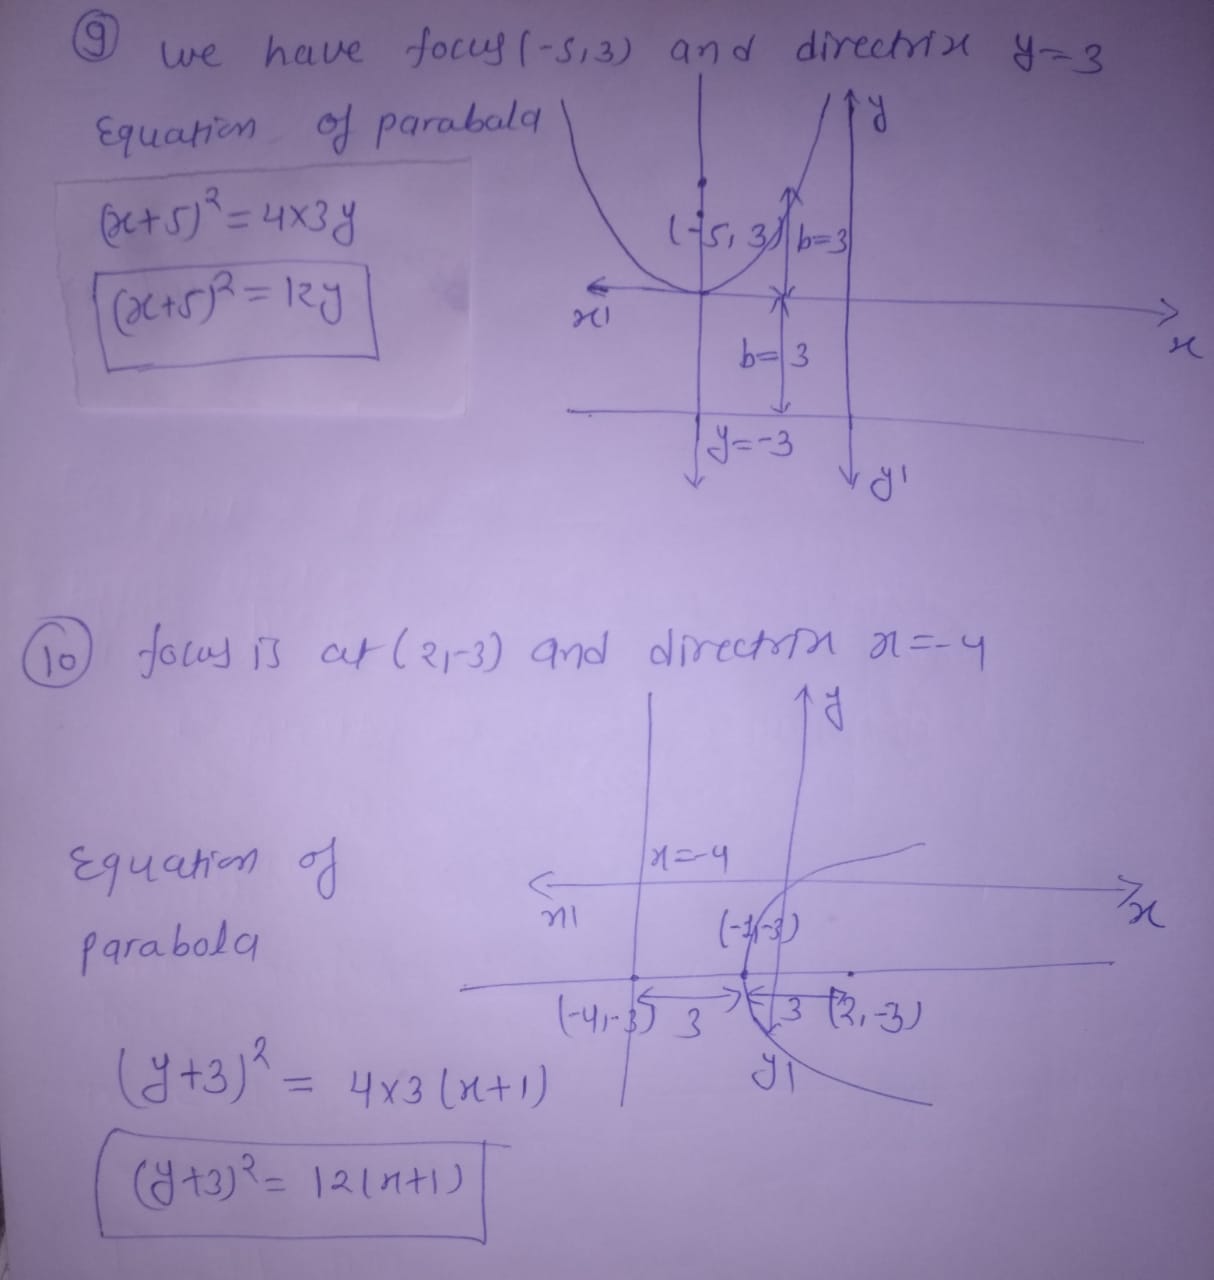 ⑨ we have focus (-5,3) and directrix y=3
Equation of parabala
(x+5)² = 4×3y
(x+5)² = 12y
y
(-5, 3)
b=3
x'
x
b=3
y=-3
y'
⑩ focus is at (2,-3) and directrix x=-4
y
Equation of
parabola
x=-4
x'
x
(-1,-3)
(-4,-3) 3 3 (2,-3)
y'
(y+3)² = 4×3(x+1)
(y+3)² = 12(x+1)